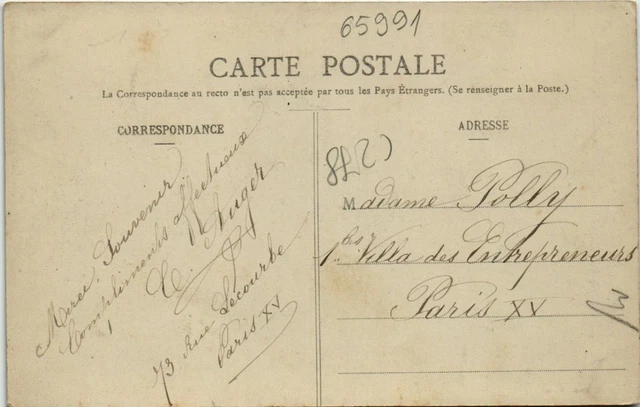 65991
CARTE POSTALE
La Correspondance au recto n'est pas acceptée par tous les Pays Étrangers. (Se renseigner à la Poste.)
CORRESPONDANCE
Merci, Souvenir
Compliments affectueux
E. Auger
73 Rue Lecourbe
Paris XV
ADRESSE
Madame Polly
1 Villa des Entrepreneurs
Paris XV